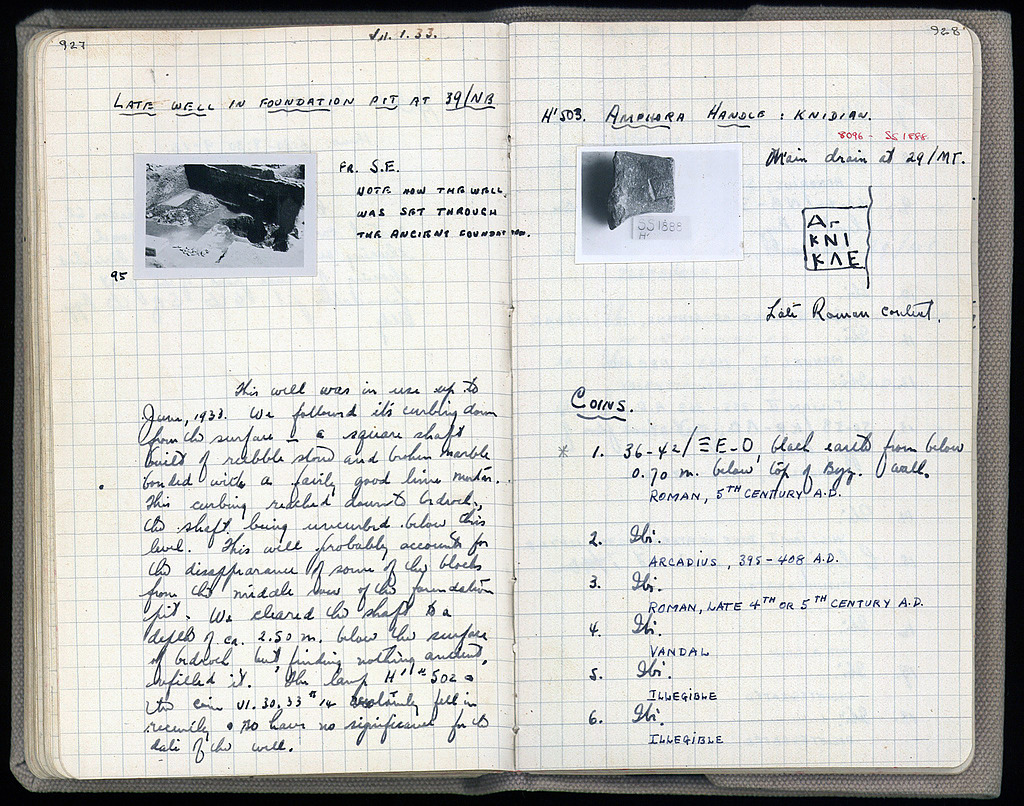 927
VII.1.33.
LATE WELL IN FOUNDATION PIT AT 39/NB
FR. S.E.
NOTE HOW THE WELL
WAS SET THROUGH
THE ANCIENT FOUNDATION.
95
This well was in use up to
June, 1933. We followed its curbing down
from the surface – a square shaft
built of rubble stone and broken marble
bonded with a fairly good lime mortar.
This curbing reached down to bedrock,
the shaft being uncurbed below this
level. This well probably accounts for
the disappearance of some of the blocks
from the middle row of the foundation
pit. We cleared the shaft to a
depth of ca. 2.50 m. below the surface
of bedrock but, finding nothing ancient,
refilled it. The lamp H' # 502 &
the coin VI.30.33 # 14 certainly fell in
recently & so have no significance for the
date of the well.
928
H'503. AMPHORA HANDLE : KNIDIAN.
8096 - SS 1888
Main drain at 29/MT.
SS 1888
H'
Ar
KNI
KΛE
Late Roman context.
COINS.
* 1. 36-42/ΞE-O, black earth from below
0.70 m. below top of Byz. wall.
ROMAN, 5TH CENTURY A.D.
2. Ibi.
ARCADIUS, 395-408 A.D.
3. Ibi.
ROMAN, LATE 4TH OR 5TH CENTURY A.D.
4. Ibi.
VANDAL
5. Ibi.
ILLEGIBLE
6. Ibi.
ILLEGIBLE